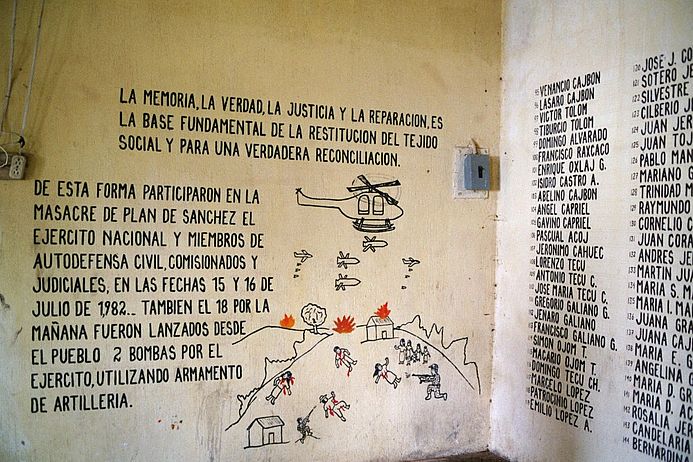 LA MEMORIA, LA VERDAD, LA JUSTICIA Y LA REPARACION, ES
LA BASE FUNDAMENTAL DE LA RESTITUCION DEL TEJIDO
SOCIAL Y PARA UNA VERDADERA RECONCILIACION.
DE ESTA FORMA PARTICIPARON EN LA
MASACRE DE PLAN DE SANCHEZ EL
EJERCITO NACIONAL Y MIEMBROS DE
AUTODEFENSA CIVIL, COMISIONADOS Y
JUDICIALES, EN LAS FECHAS 15 Y 16 DE
JULIO DE 1,982.. TAMBIEN EL 18 POR LA
MAÑANA FUERON LANZADOS DESDE
EL PUEBLO 2 BOMBAS POR EL
EJERCITO, UTILIZANDO ARMAMENTO
DE ARTILLERIA.
95 VENANCIO CAJBON
96 LASARO CAJBON
97 VICTOR TOLOM
98 TIBURCIO TOLOM
99 DOMINGO ALVARADO
100 FRANCISCO RAXCACO
101 ENRIQUE OXLAJ G.
102 ISIDRO CASTRO A.
103 ABELINO CAJBON
104 ANGEL CAPRIEL
105 GAVINO CAPRIEL
106 PASCUAL ACOJ
107 JERONIMO CAHUEC
108 LORENZO TECU
109 ANTONIO TECU C.
110 JOSE MARIA TECU C.
111 GREGORIO GALIANO G.
112 JENARO GALIANO
113 FRANCISCO GALIANO G.
114 SIMON OJOM T.
115 MACARIO OJOM T.
116 DOMINGO TECU CH.
117 MARCELO LOPEZ
118 PATROCINIO LOPEZ
119 EMILIO LOPEZ A.
120 JOSE J. CO
121 SOTERO JE
122 SILVESTRE
123 CILBERIO J
124 JUAN JER
125 JUAN TOJ
126 PABLO MAN
127 MARIANO G
128 TRINIDAD M
129 RAYMUNDO
130 CORNELIO C
131 JUAN CORA
132 ANDRES JE
133 MARTIN JU
134 MARIA S. M
135 MARIA I. MA
136 JUANA GR
137 JUANA CAJ
138 MARIA E. G
139 ANGELINA G
140 MARIA D. GR
141 MARIA D. A
142 ROSALIA JER
143 CANDELARIA
144 BERNARDINA